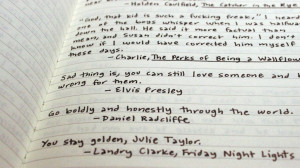 - Holden Caulfield, The Catcher in the Rye
"God, that kid is such a fucking freak," I heard
one of the boys whisper when I was halfway
down the hall. He said it more factual than
mean, and Susan didn't correct him. I don't
know if I would have corrected him myself
these days.
- Charlie, The Perks of Being a Wallflower
Sad thing is, you can still love someone and be
wrong for them.
- Elvis Presley
Go boldly and honestly through the world.
- Daniel Radcliffe
You stay golden, Julie Taylor.
- Landry Clarke, Friday Night Lights